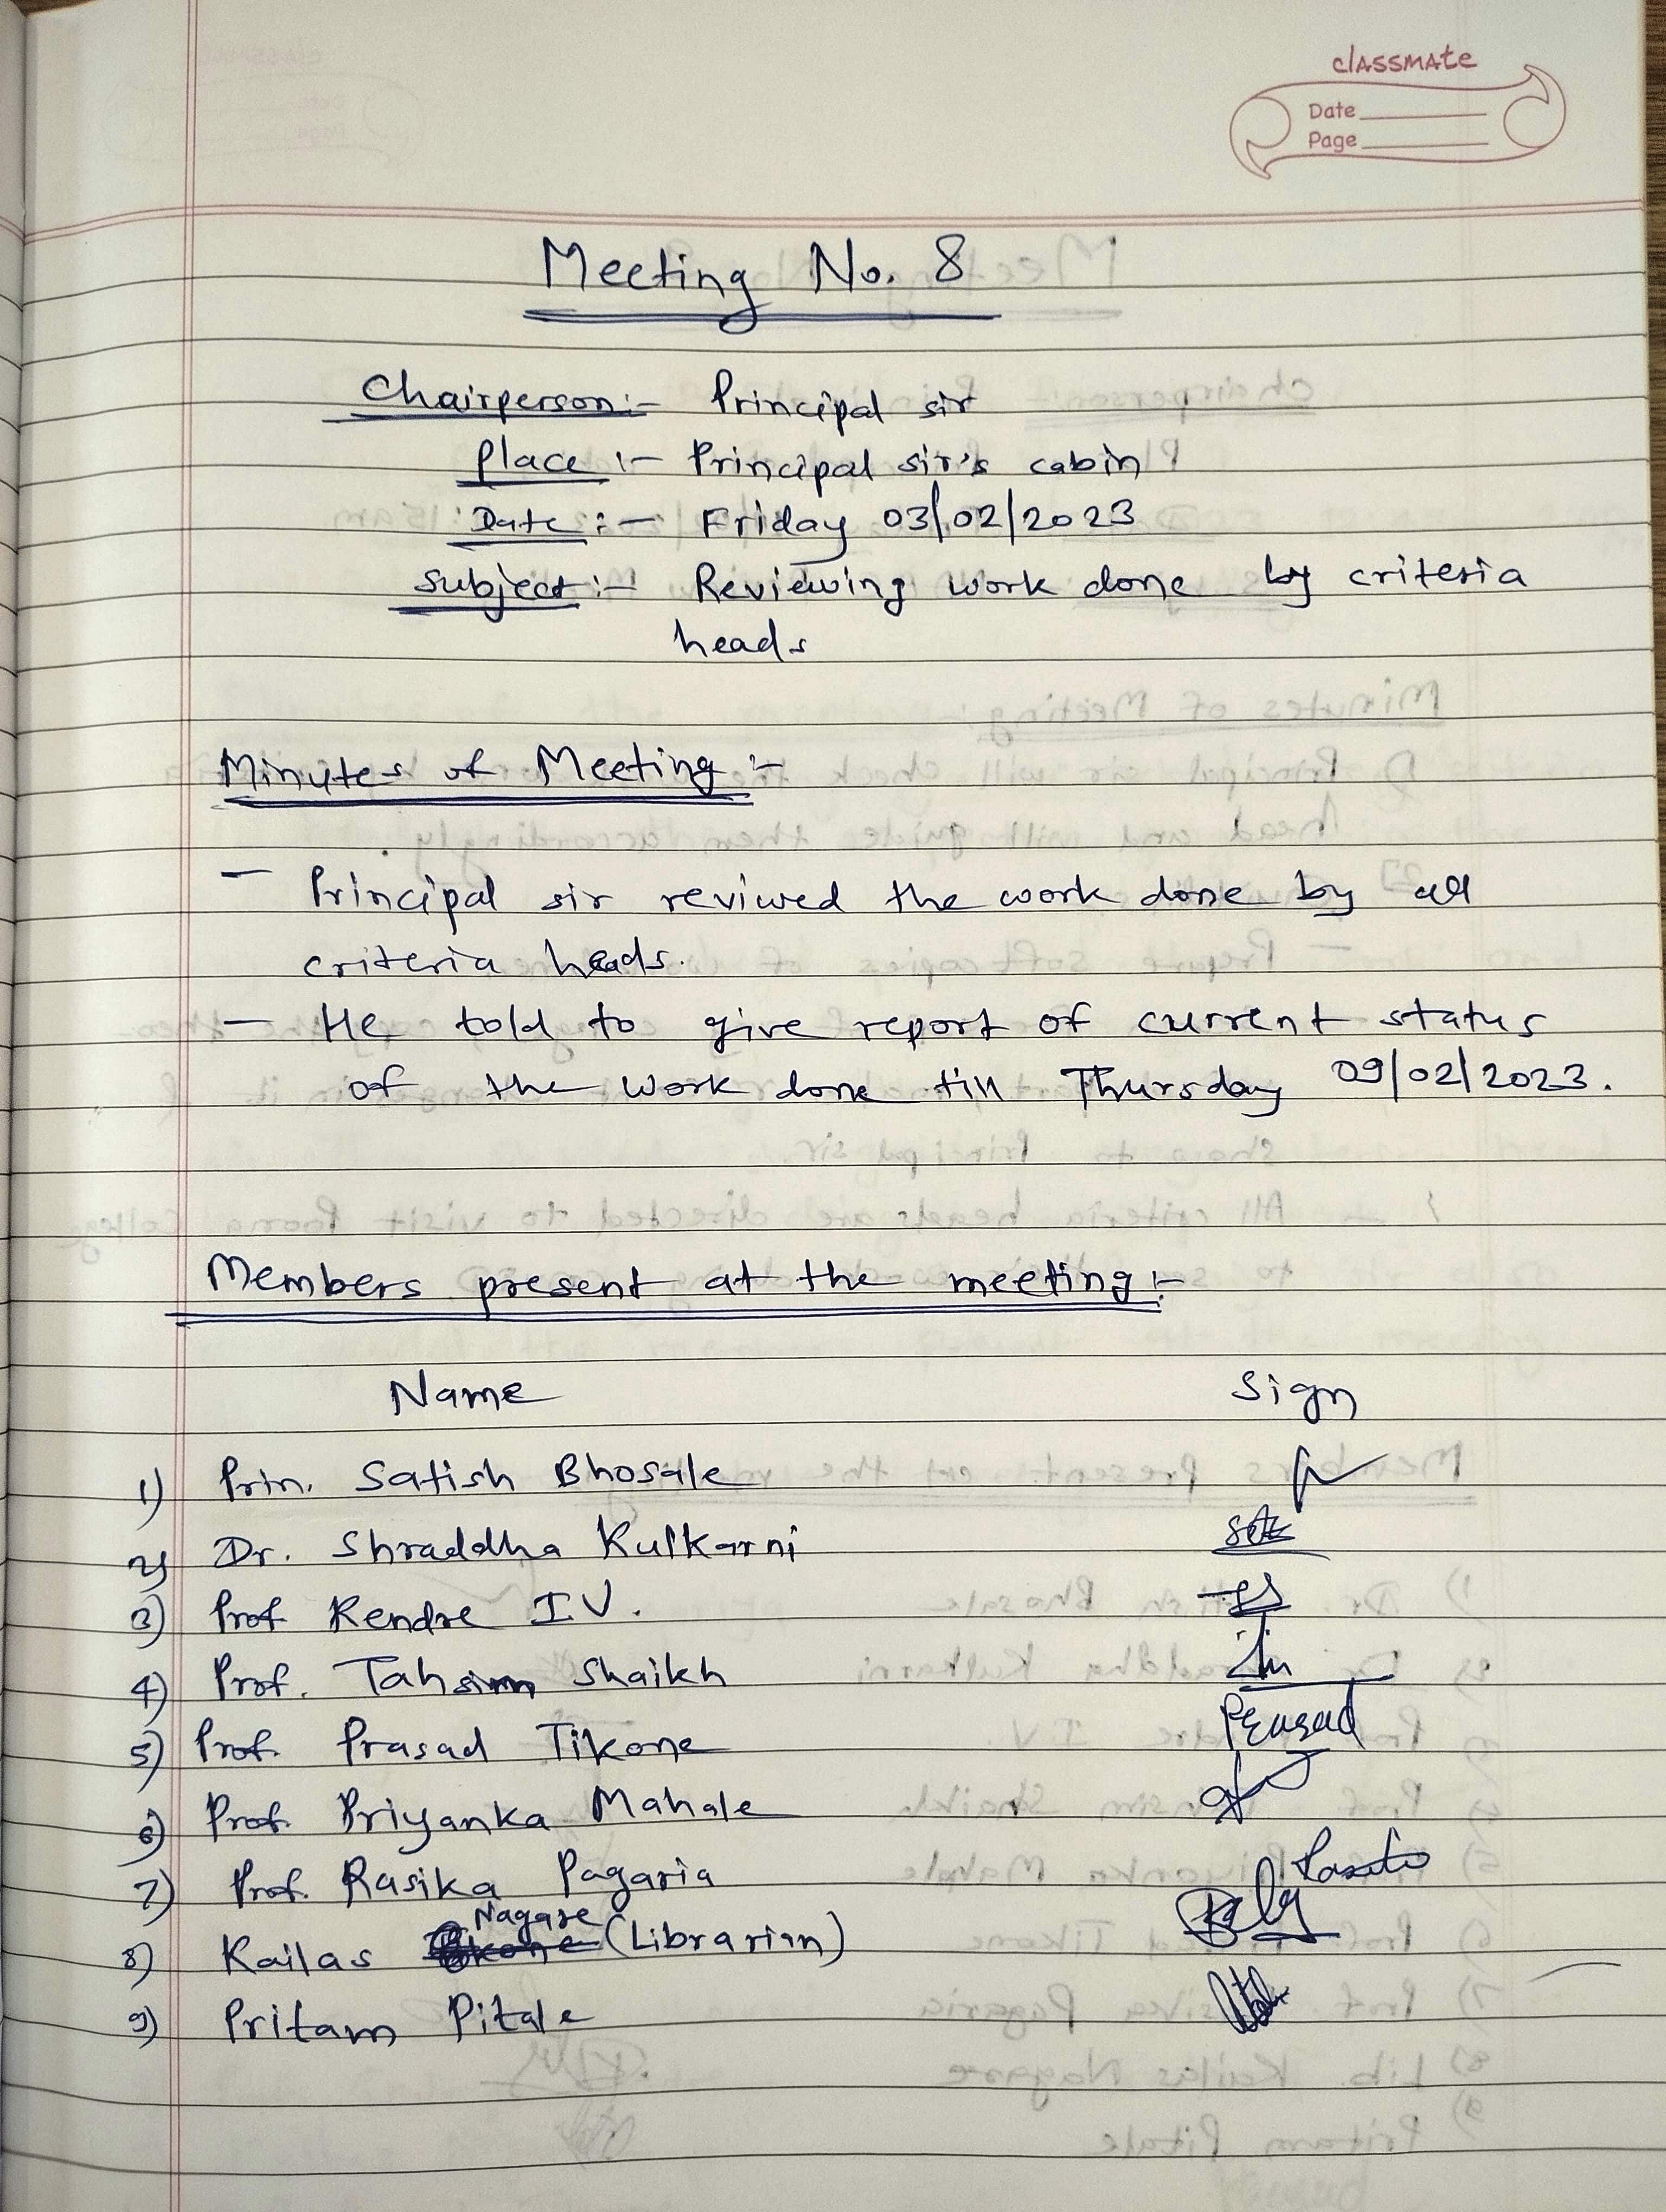 classmate
Date
Page
Meeting No. 8
Chairperson:- Principal sir
Place :- Principal sir's cabin
Date :- Friday 03/02/2023
Subject :- Reviewing work done by criteria
heads
Minutes of Meeting :-
- Principal sir reviwed the work done by all
criteria heads.
- He told to give report of current status
of the work done till Thursday 09/02/2023.
Members present at the meeting :-
Name Sign
1) Prin. Satish Bhosale
2) Dr. Shraddha Kulkarni
3) Prof Kendre I.V.
4) Prof. Tahsim Shaikh
5) Prof. Prasad Tikone Prasad
6) Prof. Priyanka Mahale
7) Prof. Rasika Pagaria
8) Kailas Nagare (Librarian)
9) Pritam Pitale